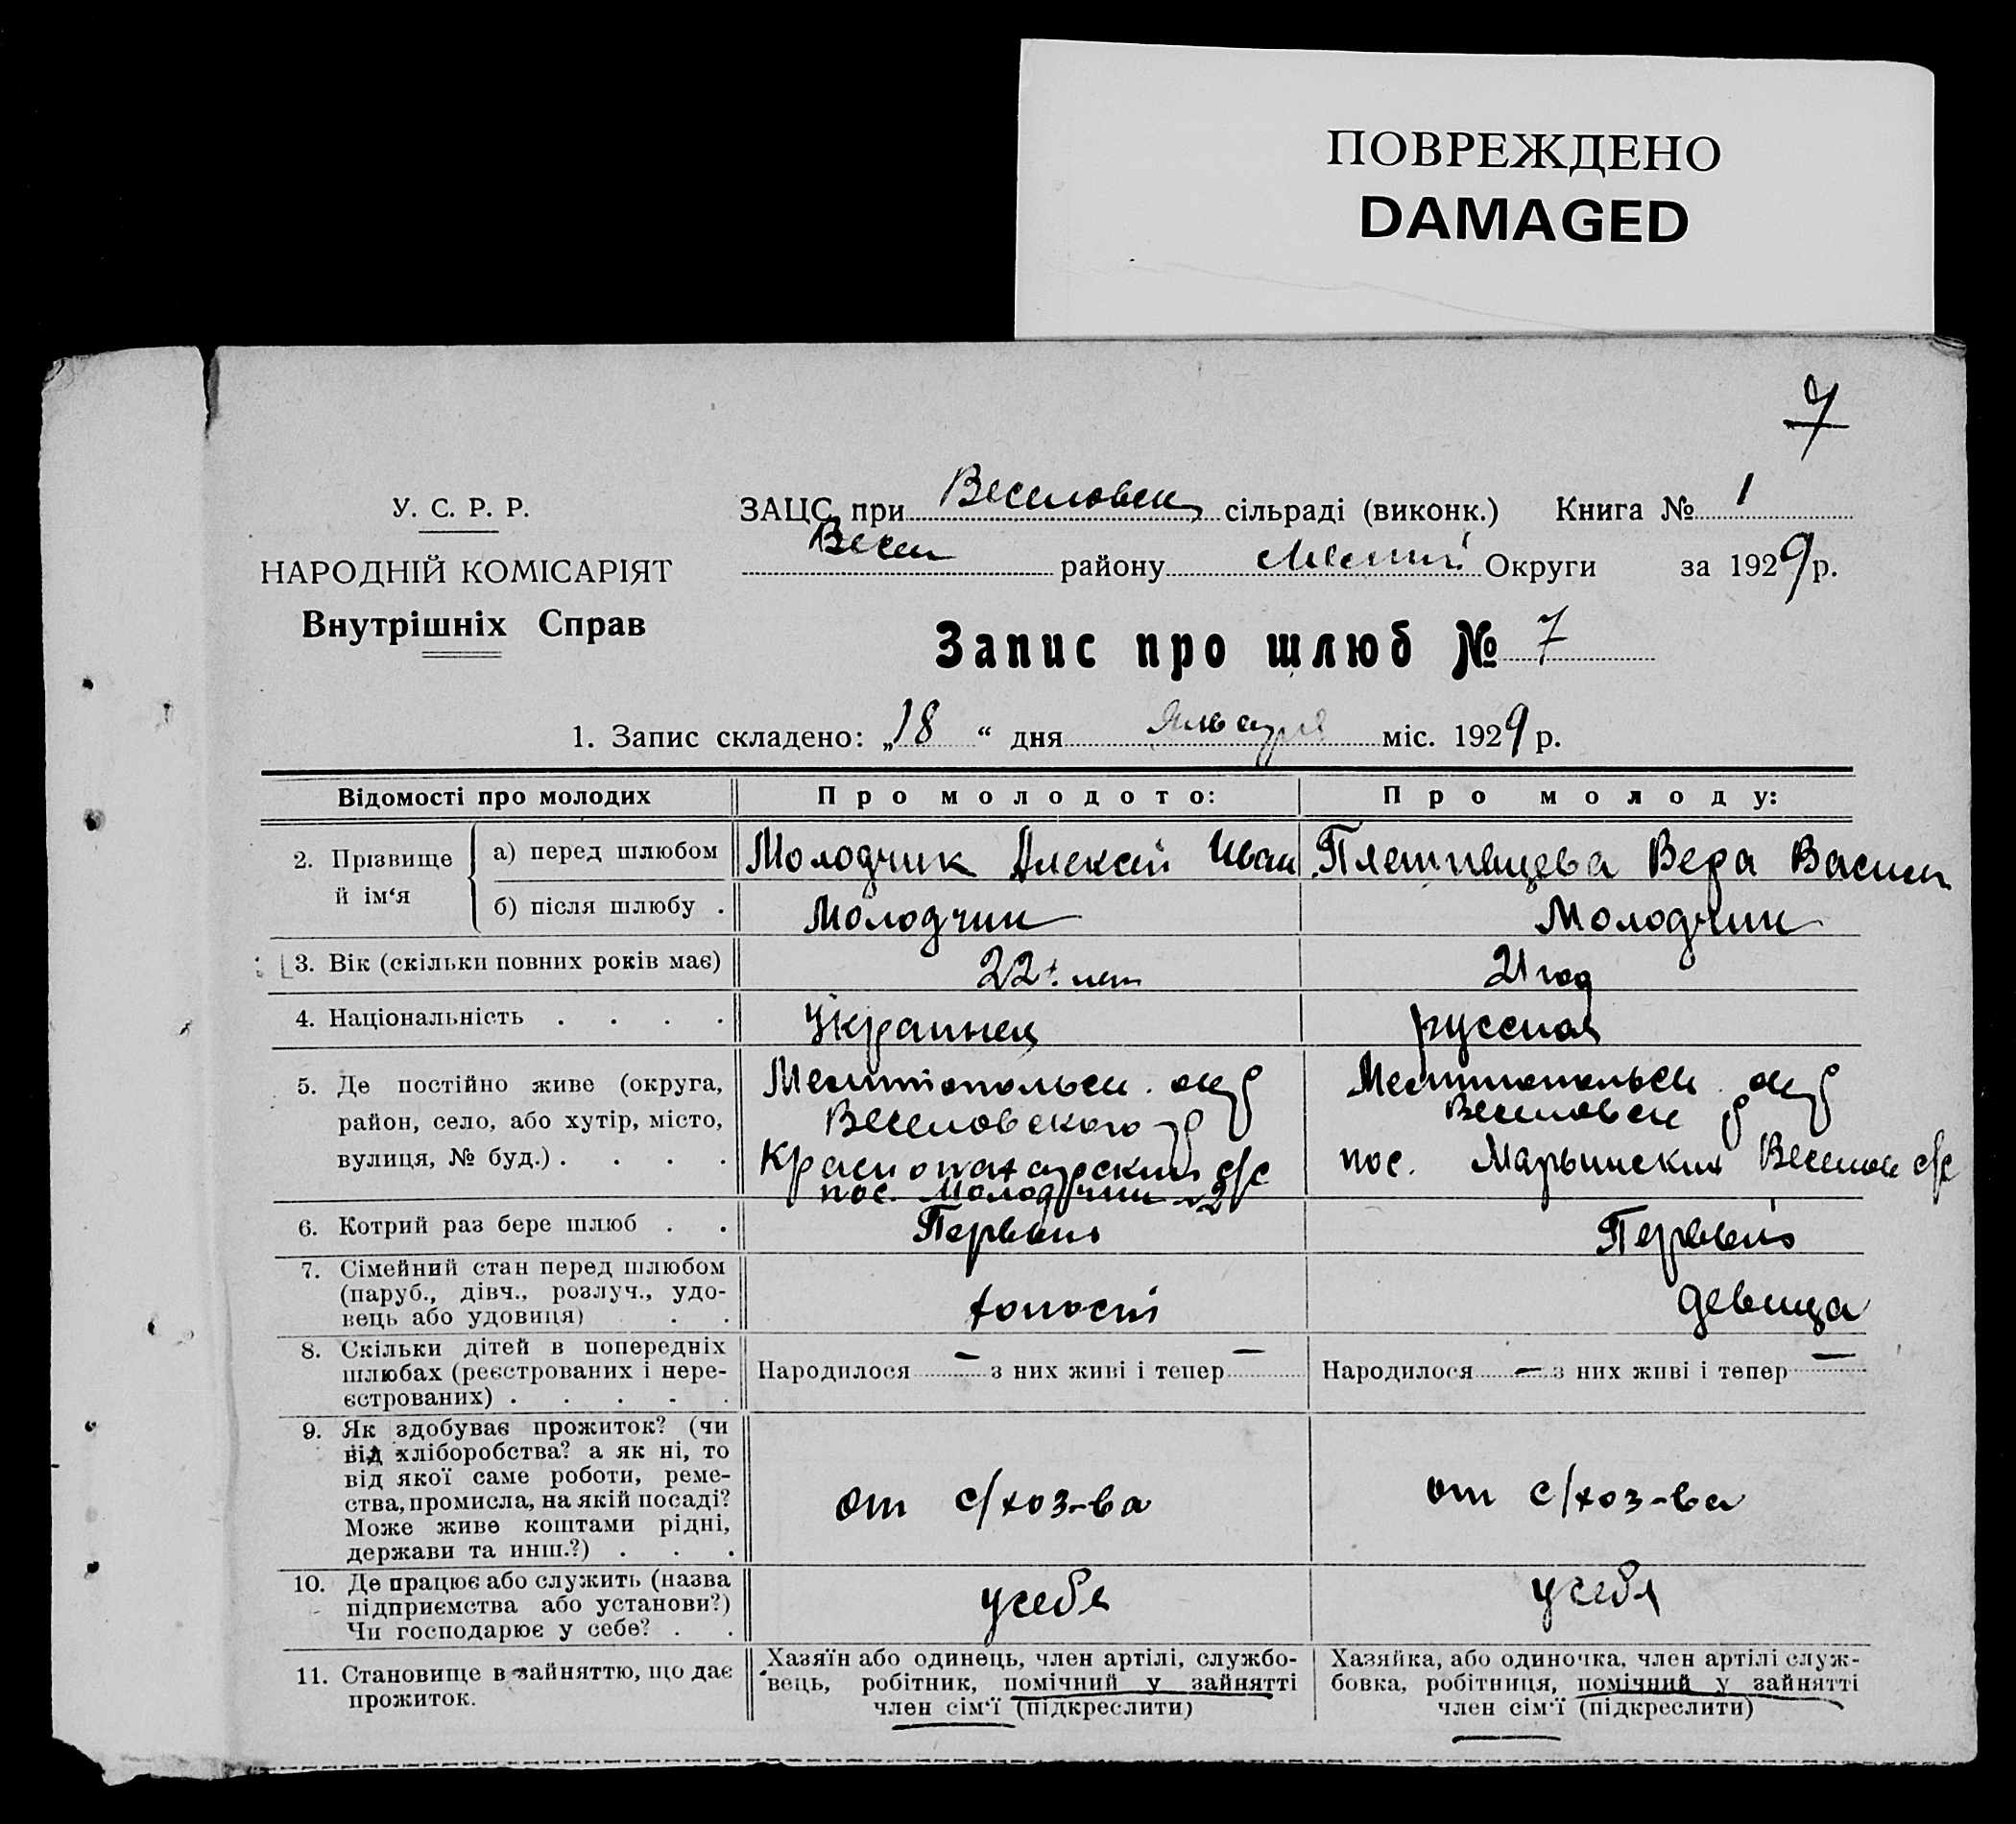 ПОВРЕЖДЕНО
DAMAGED
7
У. С. Р. Р.
НАРОДНІЙ КОМІСАРІЯТ
Внутрішніх Справ
ЗАЦС при Веселовск сільраді (виконк.) Книга № 1
Весел району Мелит. Округи за 1929 р.
Запис про шлюб № 7
1. Запис складено: „18“ дня января міс. 1929 р.
Відомості про молодих Про молодого: Про молоду:
2. Прізвище й ім‘я
а) перед шлюбом Молодчик Алексей Иван Вера Васил
б) після шлюбу . Молодчик Молодчик
3. Вік (скільки повних років має) 22 лет 21 год
4. Національність . . . . Украинец русская
5. Де постійно живе (округа, район, село, або хутір, місто, вулиця, № буд.) . . . .
Мелитопольск. окр
Веселовского р
с/с
пос. Молодчик №2
Мелитопольск. окр
Веселовск р
пос. Марьинских Веселов с/с
6. Котрий раз бере шлюб . . Первый Первый
7. Сімейний стан перед шлюбом (паруб., дівч., розлуч., удовець або удовиця) . . холост девица
8. Скільки дітей в попередніх шлюбах (реєстрованих і нереєстрованих) . . . . .
Народилося — з них живі і тепер —
Народилося — з них живі і тепер —
9. Як здобуває прожиток? (чи від хліборобства? а як ні, то від якої саме роботи, ремества, промисла, на якій посаді? Може живе коштами рідні, держави та инш.?) . . .
от с/хоз-ва от с/хоз-ва
10. Де працює або служить (назва підприємства або установи?) Чи господарює у себе? . .
у себя у себя
11. Становище в зайняттю, що дає прожиток.
Хазяїн або одинець, член артілі, службовець, робітник, помічний у зайнятті член сім‘ї (підкреслити)
Хазяйка, або одиночка, член артілі службовка, робітниця, помічний у зайнятті член сім‘ї (підкреслити)